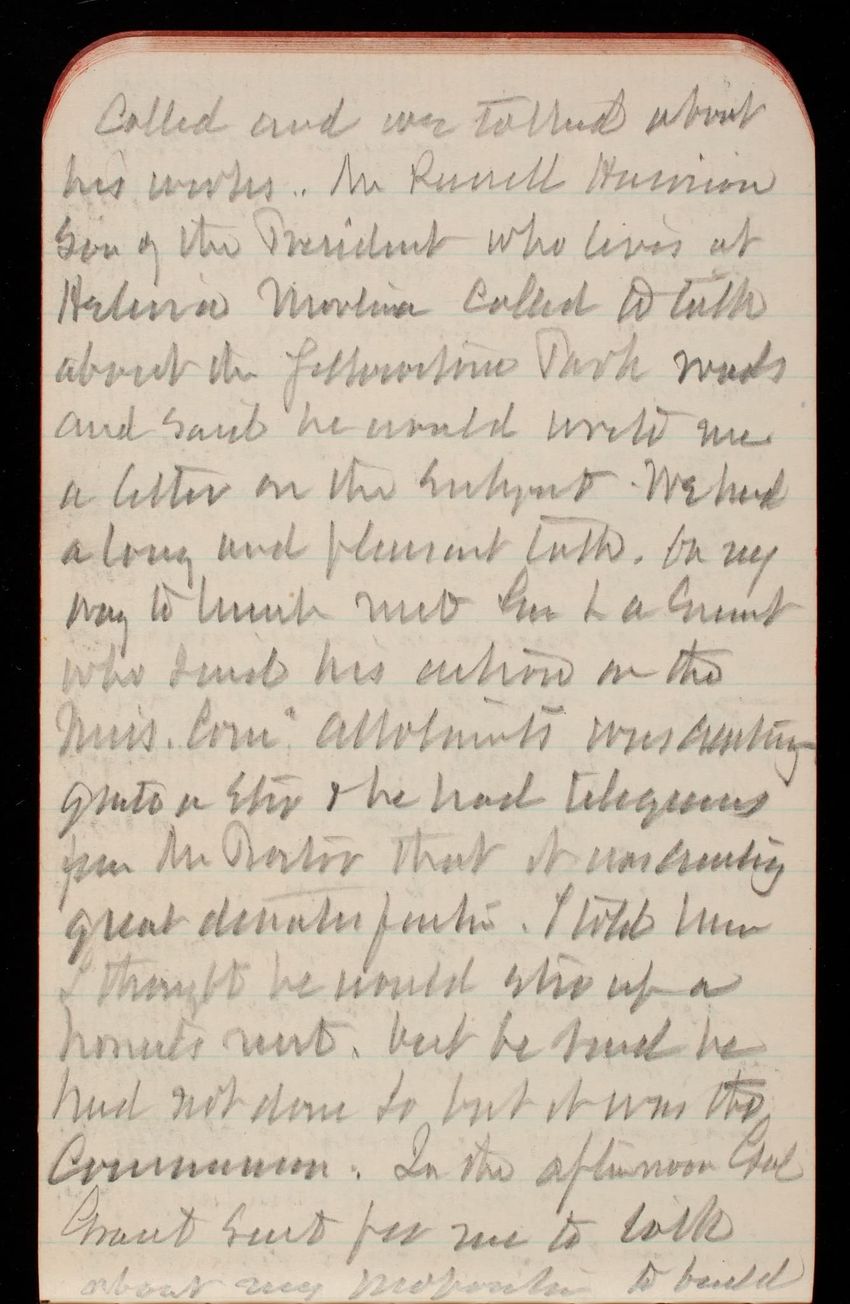 Called and we talked about
his works.. Mr Russell Harrison
Son of the President who lives at
Helena Montana Called to talk
about the Yellowstone Park roads
and said he would write me
a letter on the subject. We had
a long and pleasant talk. On my
way to lunch met Gen L a Grant
who said his action on the
Miss. Com. allotments was creating
quite a stir & he had telegrams
from Mr that it was creating
great . I told him
I thought he would stir up a
hornets nest. but he said he
had not done so but it was the
Commission. In the afternoon Genl
Grant sent for me to talk
about my to build